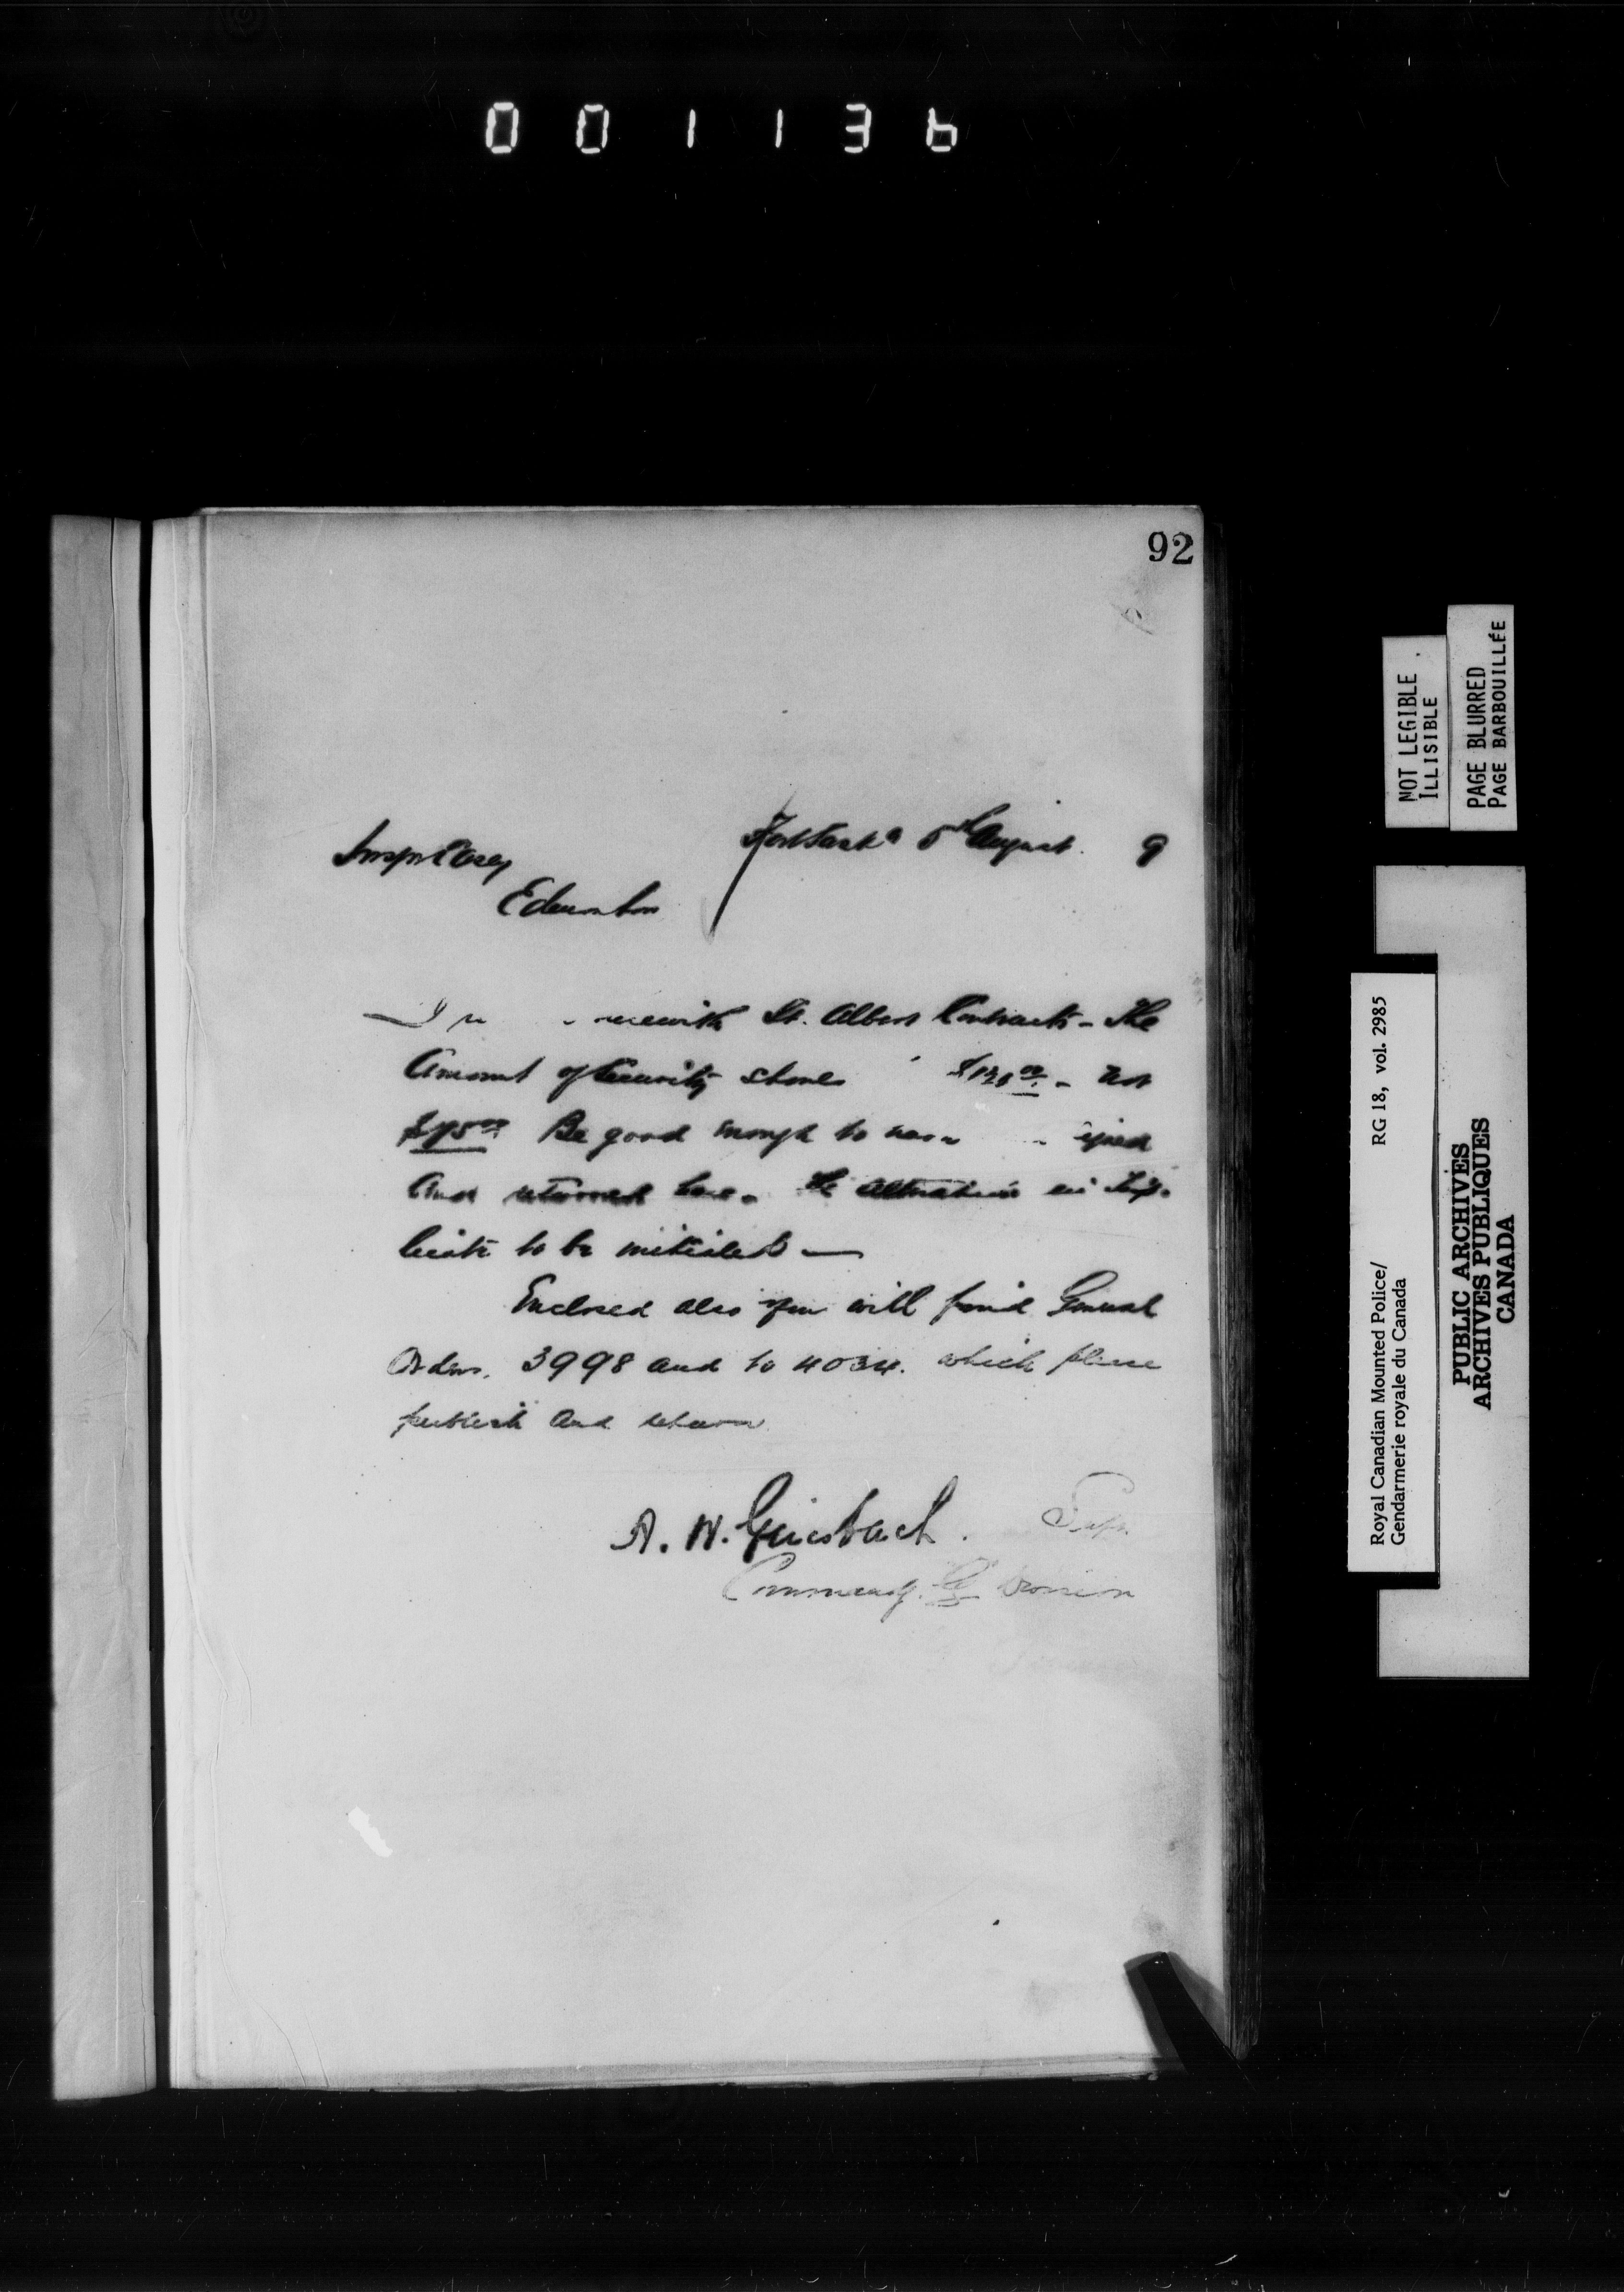 001136
92
Fort Sask n 5th August. 9
Insp Casey
Edmonton
I herewith St. Albert Contracts - The
Amount of Security should $120 00 - not
$75 00 Be good enough to have signed
And returned here - The alterations in Trip-
licate to be initialed —
Enclosed also you will find General
Orders. 3998 and to 4034. which please
publish and return
A. H. Griesbach. Supt.
Commdg. G Division
NOT LEGIBLE
ILLISIBLE
PAGE BLURRED
PAGE BARBOUILLÉE
Royal Canadian Mounted Police/ RG 18, vol. 2985
Gendarmerie royale du Canada
PUBLIC ARCHIVES
ARCHIVES PUBLIQUES
CANADA